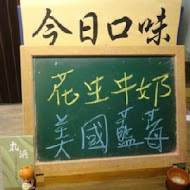 今日口味
花生牛奶
美國藍莓